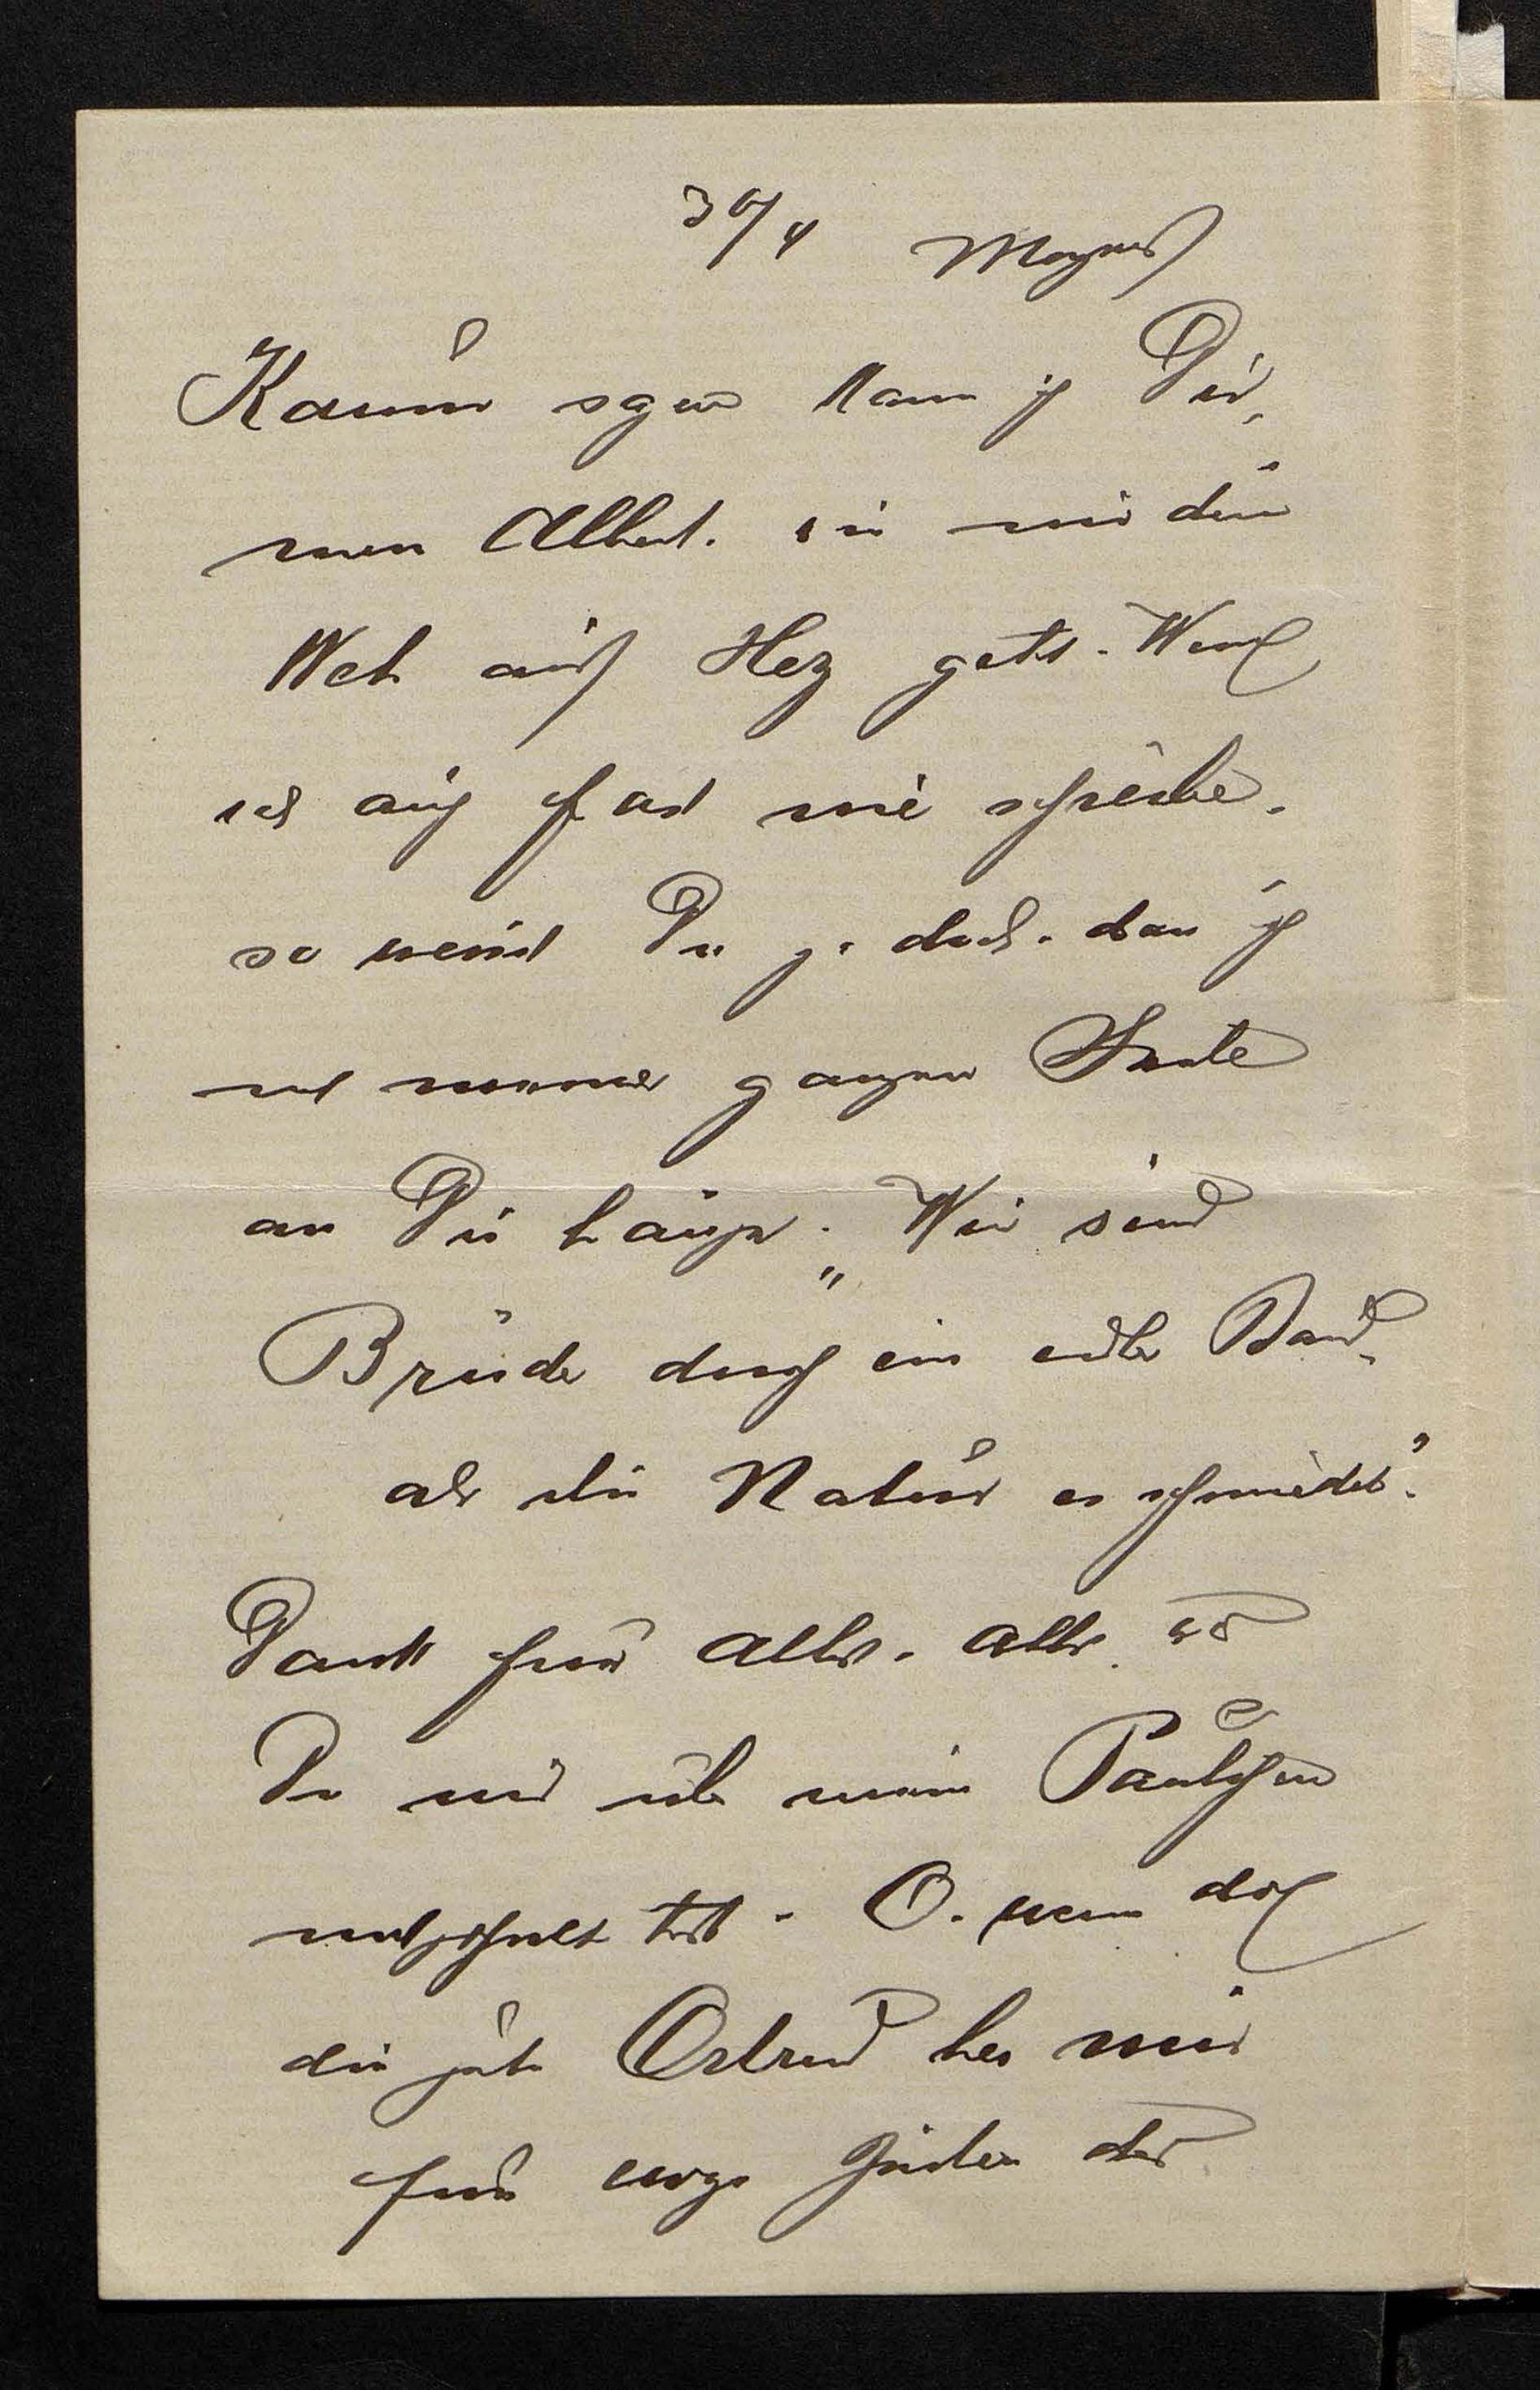 30/4 Morgens
Kaum sagen kann ich Dir,
mein Albert. wie mir dein
Weh ans Herz geht. Wenn
ich auch fast nie schreibe,
so weißt Du ja doch, daß ich
mit meiner ganzen Seele
an Dir hänge. „Wir sind
Brüder durch ein edler Band,
als die Natur es schmiedet".
Dank für alles, alles was
Du mir über mein Paulchen
mitgetheilt hast. O, wenn doch
die gute Ostrud bei mir
für ewige Zeiten